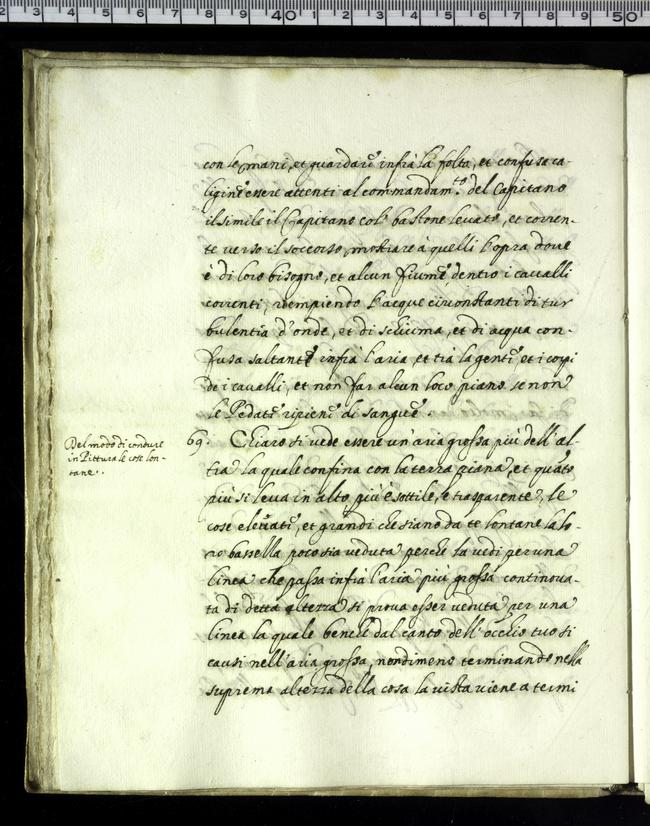 con le mani, et guardare infra la folta, et confusa ca-
ligine essere attenti al commandam.to del Capitano
il simile il Capitano col bastone levato, et corren-
te verso il soccorso mostrare à quelli l'opra dove
è di loro bisogno, et alcun fiume dentro i cavalli
correnti, riempiendo l'acque circonstanti di tur
bulentia d'onde, et di schiuma, et di acqua con-
fusa saltante infra l'aria, et tra la gente, et i corpi
de i cavalli, et non far alcun loco piano se non
le Pedate ripiene di sangue.
Del modo di condure
in Pittura le cose lon-
tane.
69. Chiaro si vede essere un'aria grossa più dell'al-
tra la quale confina con la terra piana, et quāto
più si leva in alto più è sottile, e trasparente, le
cose elevate, et grandi che siano da te lontane la lo-
ro bassezza poco sia veduta perche la vedi per una
linea che passa infra l'aria più grossa continova-
ta di detta altezza si prova esser veduta per una
linea la quale benche dal canto dell'occhio tuo si
causi nell'aria grossa, nondimeno terminando nella
suprema altezza della cosa la vista viene a termi